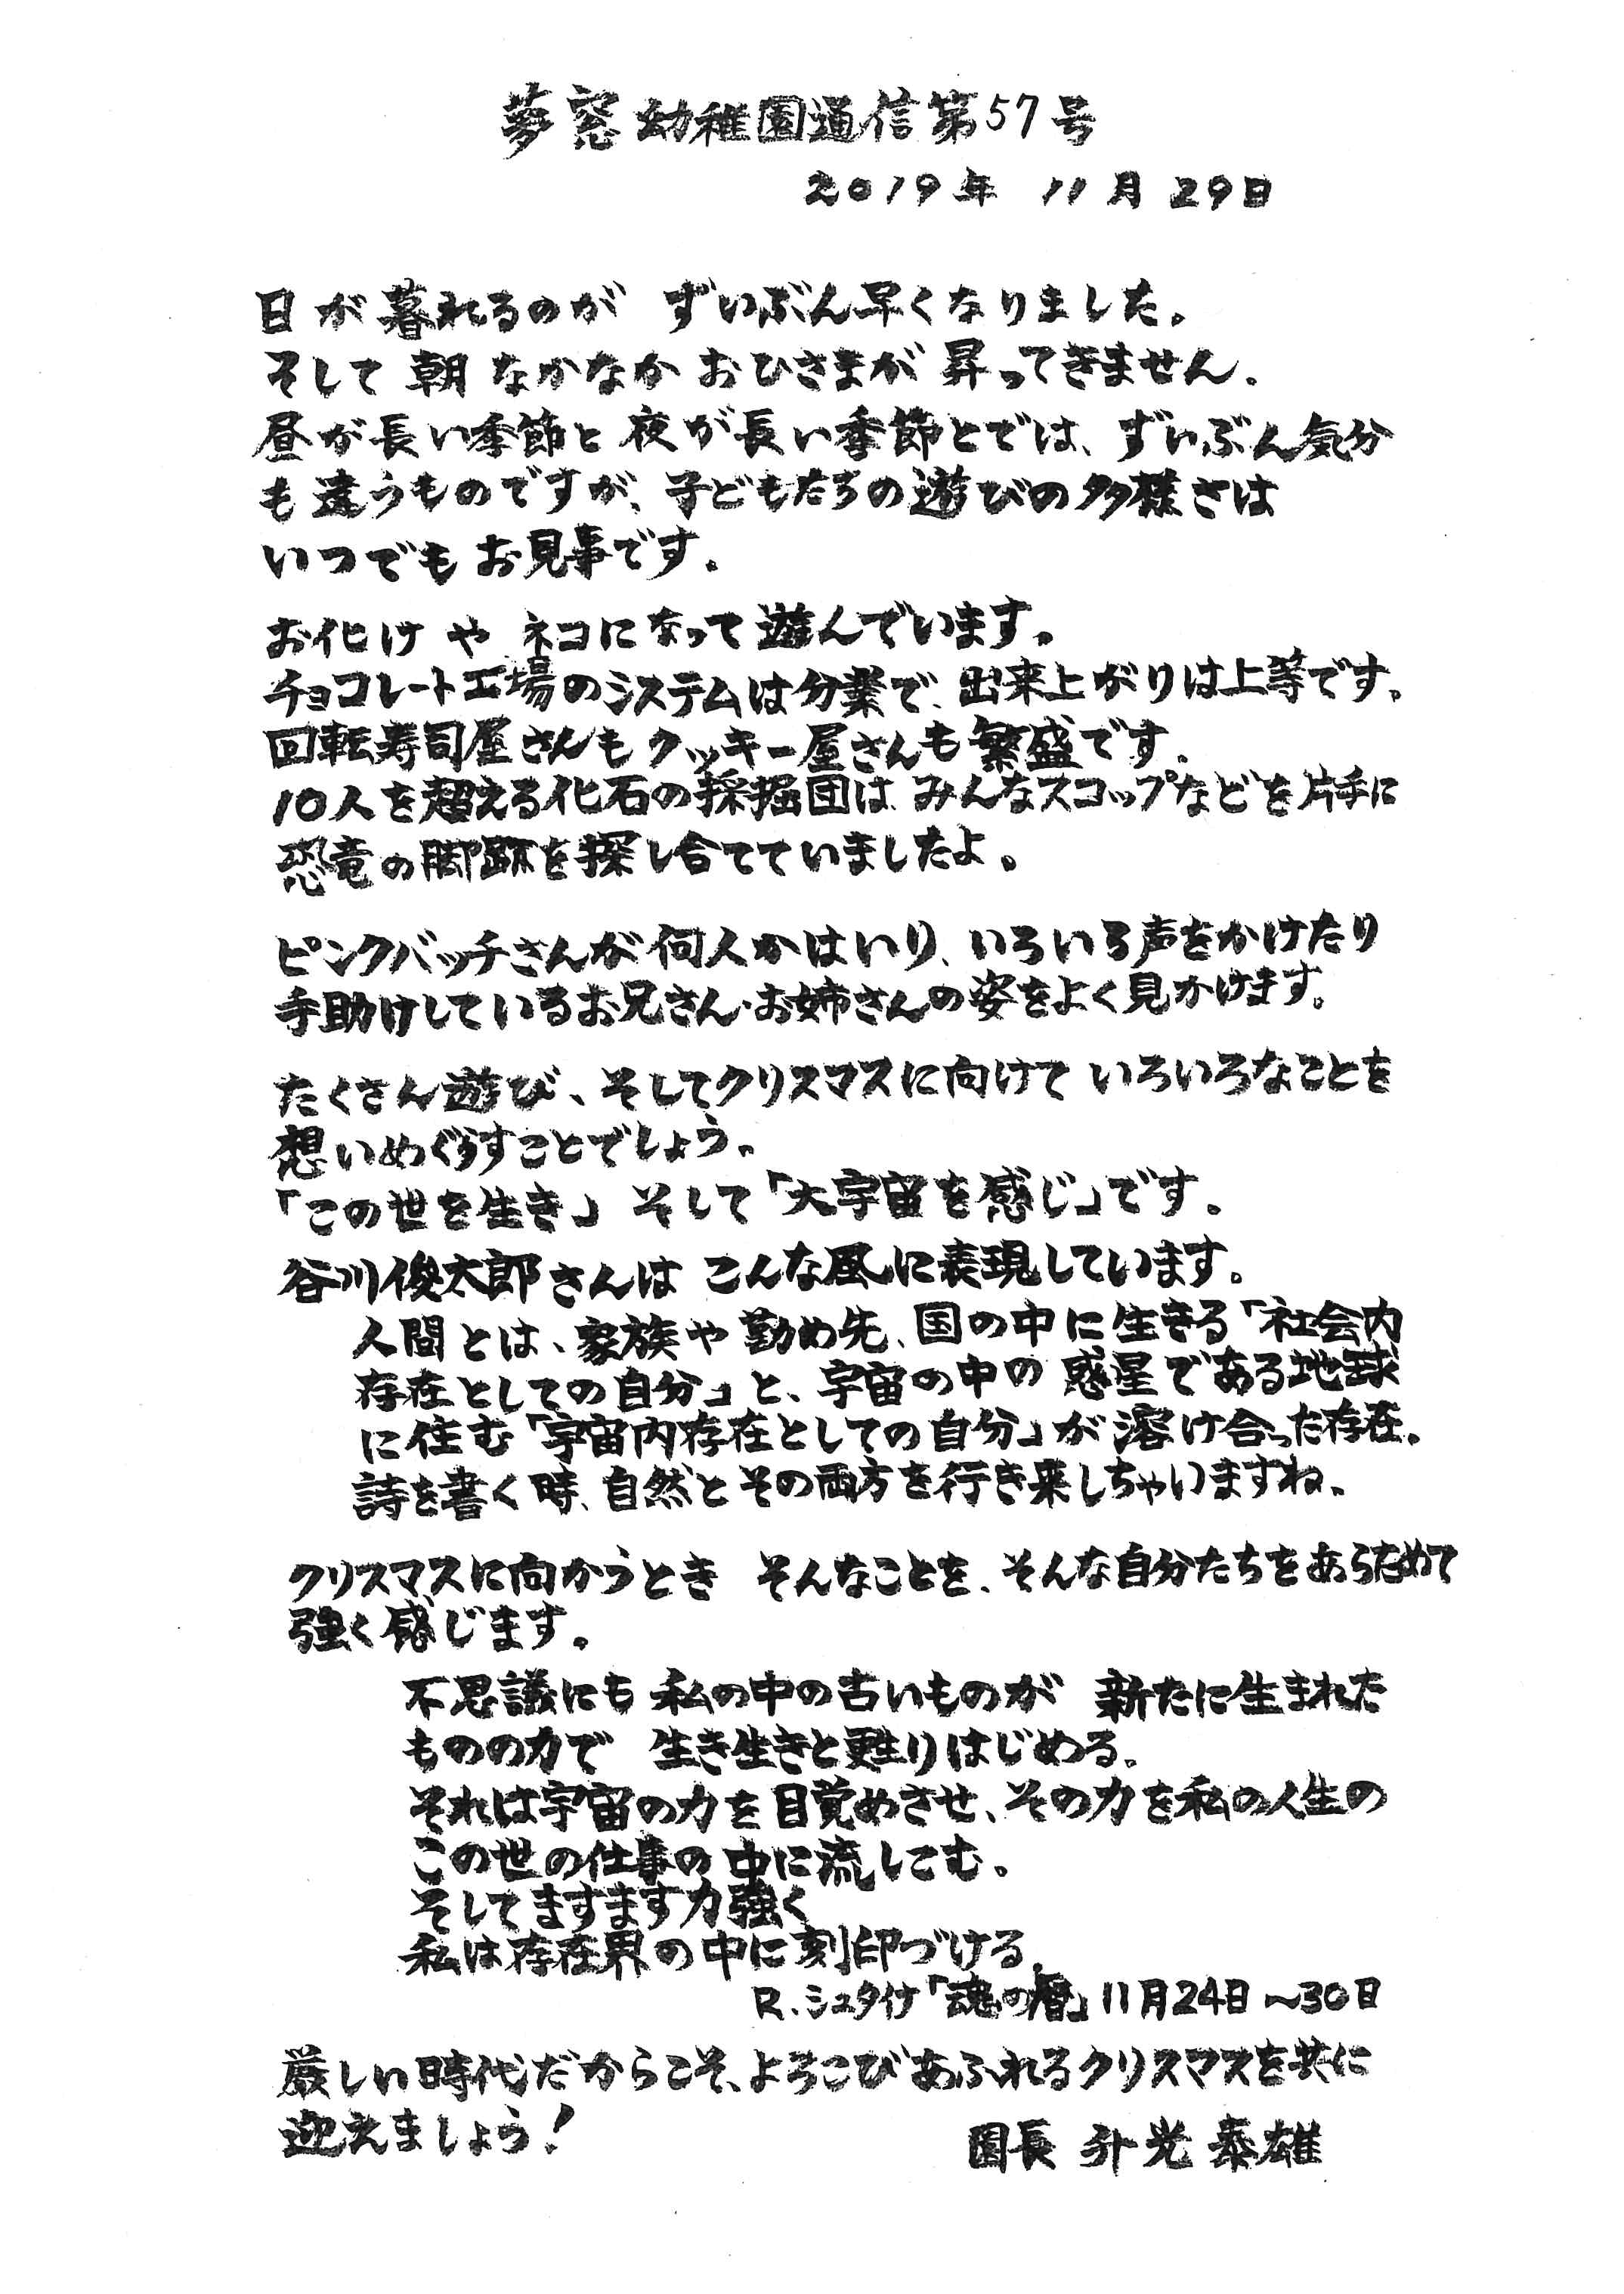 夢窓幼稚園通信第57号
2019年 11月29日
日が暮れるのが ずいぶん早くなりました。
そして 朝 なかなか おひさまが 昇ってきません。
昼が長い季節と 夜が長い季節とでは、ずいぶん気分
も違うものですが、子どもたちの遊びの多様さは
いつでも お見事です。
お化けや ネコになって遊んでいます。
チョコレート工場のシステムは分業で、出来上がりは上等です。
回転寿司屋さんもクッキー屋さんも繁盛です。
10人を超える化石の採掘団は、みんなスコップなどを片手に
恐竜の脚跡を探し合てていましたよ。
ピンクバッチさんが何人かはいり、いろいろ声をかけたり
手助けしているお兄さん・お姉さんの姿をよく見かけます。
たくさん遊び、そしてクリスマスに向けて いろいろなことを
想いめぐらすことでしょう。
「この世を生き」 そして「大宇宙を感じ」です。
谷川俊太郎さんは こんな風に表現しています。
人間とは、家族や勤め先、国の中に生きる「社会内
存在としての自分」と、宇宙の中の惑星である地球
に住む「宇宙内存在としての自分」が溶け合った存在。
詩を書く時、自然とその両方を行き来しちゃいますね。
クリスマスに向かうとき そんなことを、そんな自分たちをあらためて
強く感じます。
不思議にも 私の中の古いものが 新たに生まれた
ものの力で 生き生きと甦りはじめる。
それは宇宙の力を目覚めさせ、その力を私の人生の
この世の仕事の中に流しこむ。
そしてますます力強く
私は存在界の中に刻印づける。
R.シュタイナ「魂の暦」11月24日〜30日
厳しい時代だからこそ、よろこびあふれるクリスマスを共に
迎えましょう!
園長 升光 泰雄